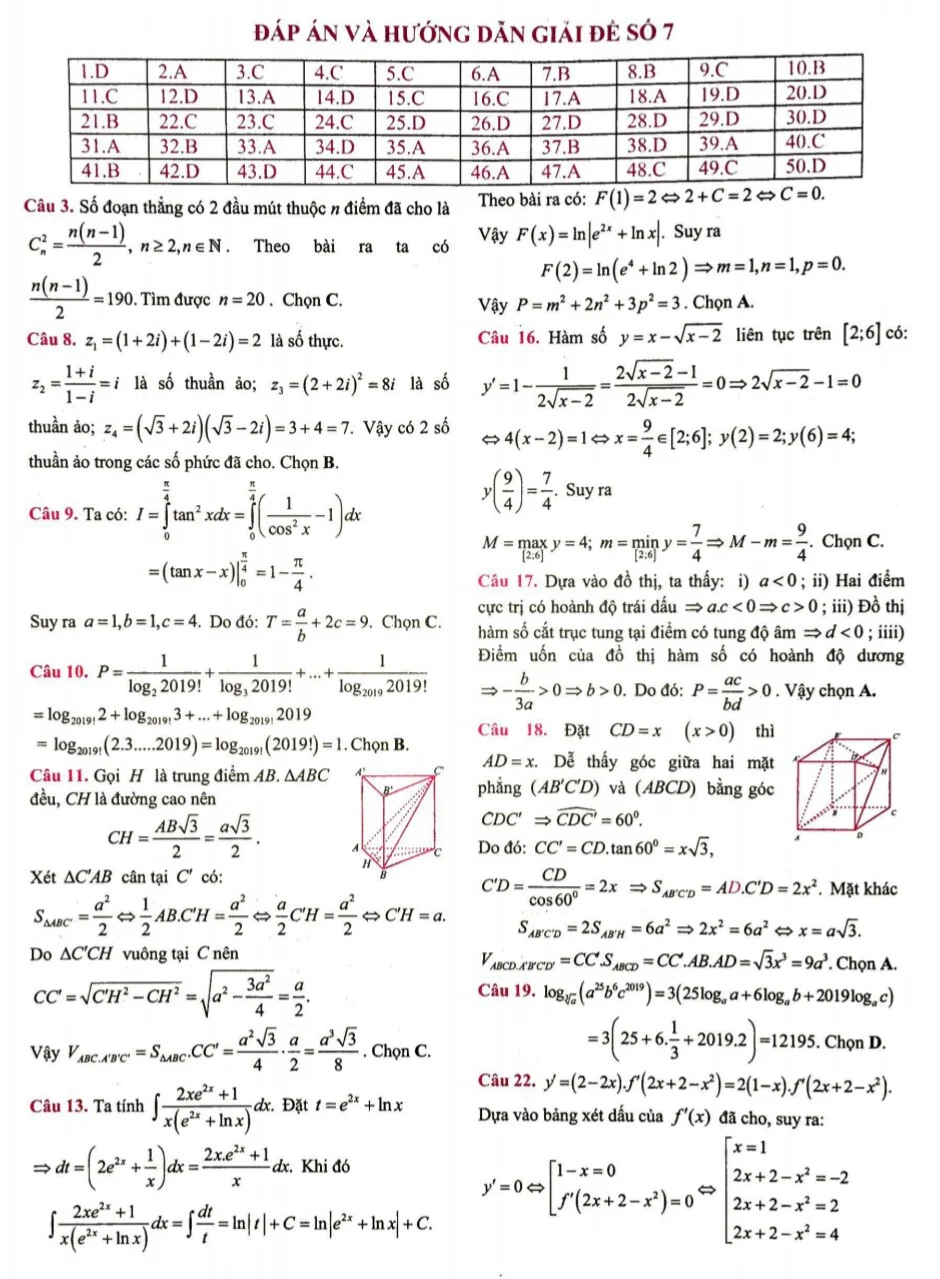 ĐÁP ÁN VÀ HƯỚNG DẪN GIẢI ĐỀ SỐ 7
1.D 2.A 3.C 4.C 5.C 6.A 7.B 8.B 9.C 10.B
11.C 12.D 13.A 14.D 15.C 16.C 17.A 18.A 19.D 20.D
21.B 22.C 23.C 24.C 25.D 26.D 27.D 28.D 29.D 30.D
31.A 32.B 33.A 34.D 35.A 36.A 37.B 38.D 39.A 40.C
41.B 42.D 43.D 44.C 45.A 46.A 47.A 48.C 49.C 50.D
Câu 3. Số đoạn thẳng có 2 đầu mút thuộc n điểm đã cho là
C_n^2 = n(n−1)/2, n ≥ 2, n ∈ ℕ. Theo bài ra ta có
n(n−1)/2 = 190. Tìm được n = 20. Chọn C.
Câu 8. z₁ = (1+2i)+(1−2i) = 2 là số thực.
z₂ = (1+i)/(1−i) = i là số thuần ảo; z₃ = (2+2i)² = 8i là số
thuần ảo; z₄ = (√3+2i)(√3−2i) = 3+4 = 7. Vậy có 2 số
thuần ảo trong các số phức đã cho. Chọn B.
Câu 9. Ta có: I = ∫_0^{π/4} tan² xdx = ∫_0^{π/4} (1/cos² x − 1)dx
= (tan x − x)|_0^{π/4} = 1 − π/4.
Suy ra a = 1, b = 1, c = 4. Do đó: T = a/b + 2c = 9. Chọn C.
Câu 10. P = 1/log₂ 2019! + 1/log₃ 2019! + ... + 1/log₂₀₁₉ 2019!
= log_{2019!} 2 + log_{2019!} 3 + ... + log_{2019!} 2019
= log_{2019!} (2.3.....2019) = log_{2019!} (2019!) = 1. Chọn B.
Câu 11. Gọi H là trung điểm AB. ΔABC
đều, CH là đường cao nên
CH = AB√3/2 = a√3/2.
A' C' B' A C H B
Xét ΔC'AB cân tại C' có:
S_{ΔABC'} = a²/2 ⇔ 1/2 AB.C'H = a²/2 ⇔ a/2 C'H = a²/2 ⇔ C'H = a.
Do ΔC'CH vuông tại C nên
CC' = √(C'H² − CH²) = √(a² − 3a²/4) = a/2.
Vậy V_{ABC.A'B'C'} = S_{ΔABC}.CC' = a²√3/4 . a/2 = a³√3/8. Chọn C.
Câu 13. Ta tính ∫ (2xe^{2x}+1)/(x(e^{2x}+ln x)) dx. Đặt t = e^{2x} + ln x
⇒ dt = (2e^{2x} + 1/x)dx = (2x.e^{2x}+1)/x dx. Khi đó
∫ (2xe^{2x}+1)/(x(e^{2x}+ln x)) dx = ∫ dt/t = ln|t| + C = ln|e^{2x} + ln x| + C.
Theo bài ra có: F(1) = 2 ⇔ 2 + C = 2 ⇔ C = 0.
Vậy F(x) = ln|e^{2x} + ln x|. Suy ra
F(2) = ln(e⁴ + ln 2) ⇒ m = 1, n = 1, p = 0.
Vậy P = m² + 2n² + 3p² = 3. Chọn A.
Câu 16. Hàm số y = x − √(x−2) liên tục trên [2;6] có:
y' = 1 − 1/(2√(x−2)) = (2√(x−2) − 1)/(2√(x−2)) = 0 ⇒ 2√(x−2) − 1 = 0
⇔ 4(x−2) = 1 ⇔ x = 9/4 ∈ [2;6]; y(2) = 2; y(6) = 4;
y(9/4) = 7/4. Suy ra
M = max_{[2;6]} y = 4; m = min_{[2;6]} y = 7/4 ⇒ M − m = 9/4. Chọn C.
Câu 17. Dựa vào đồ thị, ta thấy: i) a < 0 ; ii) Hai điểm
cực trị có hoành độ trái dấu ⇒ a.c < 0 ⇒ c > 0 ; iii) Đồ thị
hàm số cắt trục tung tại điểm có tung độ âm ⇒ d < 0 ; iiii)
Điểm uốn của đồ thị hàm số có hoành độ dương
⇒ −b/3a > 0 ⇒ b > 0. Do đó: P = ac/bd > 0. Vậy chọn A.
Câu 18. Đặt CD = x (x > 0) thì
AD = x. Dễ thấy góc giữa hai mặt
phẳng (AB'C'D) và (ABCD) bằng góc
CDC' ⇒ CDC' = 60⁰.
Do đó: CC' = CD.tan 60⁰ = x√3,
C'D = CD/cos60⁰ = 2x ⇒ S_{AB'C'D} = AD.C'D = 2x². Mặt khác
S_{AB'C'D} = 2S_{AB'H} = 6a² ⇒ 2x² = 6a² ⇔ x = a√3.
V_{ABCD.A'B'C'D'} = CC'.S_{ABCD} = CC'.AB.AD = √3x³ = 9a³. Chọn A.
Câu 19. log_{∛a} (a²⁵b⁶c²⁰¹⁹) = 3(25log_a a + 6log_a b + 2019log_a c)
= 3(25 + 6.1/3 + 2019.2) = 12195. Chọn D.
Câu 22. y' = (2−2x).f'(2x+2−x²) = 2(1−x).f'(2x+2−x²).
Dựa vào bảng xét dấu của f'(x) đã cho, suy ra:
y' = 0 ⇔ [1−x = 0; f'(2x+2−x²) = 0 ⇔ [x = 1; 2x+2−x² = −2; 2x+2−x² = 2; 2x+2−x² = 4